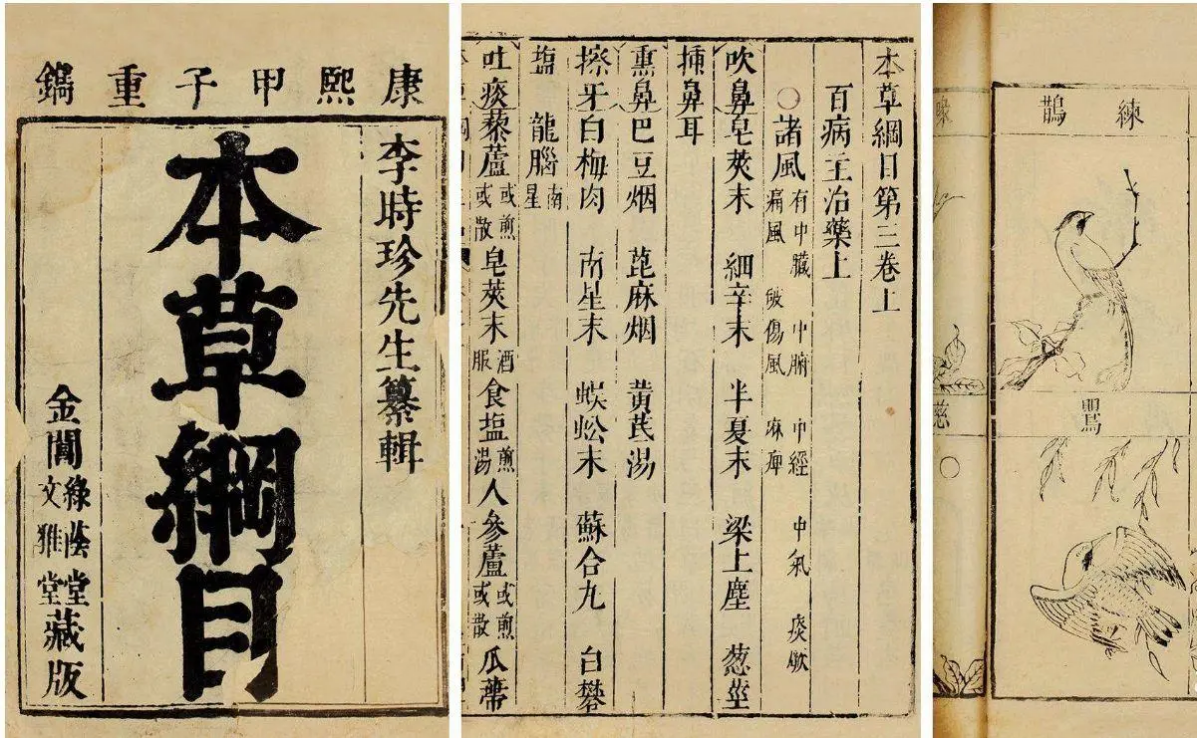 康熙甲子重鐫
李時珍先生纂輯
本草綱目
金閶綠蔭堂文雅堂藏版
本草綱目第三卷上
百病主治藥上
○諸風有中臟 中腑 中經 中氣 痰厥
痛風 破傷風 麻痺
吹鼻皂莢末 細辛末 半夏末 梁上塵 葱莖
插鼻耳
熏鼻巴豆烟 蓖麻烟 黄芪湯
擦牙白梅肉 南星末 蜈蚣末 蘇合丸 白礬
塩 龍腦南星
吐痰藜蘆或煎或散 皂莢末酒服 食塩煎湯 人參蘆或煎或散 瓜蒂
練鵲
鸎